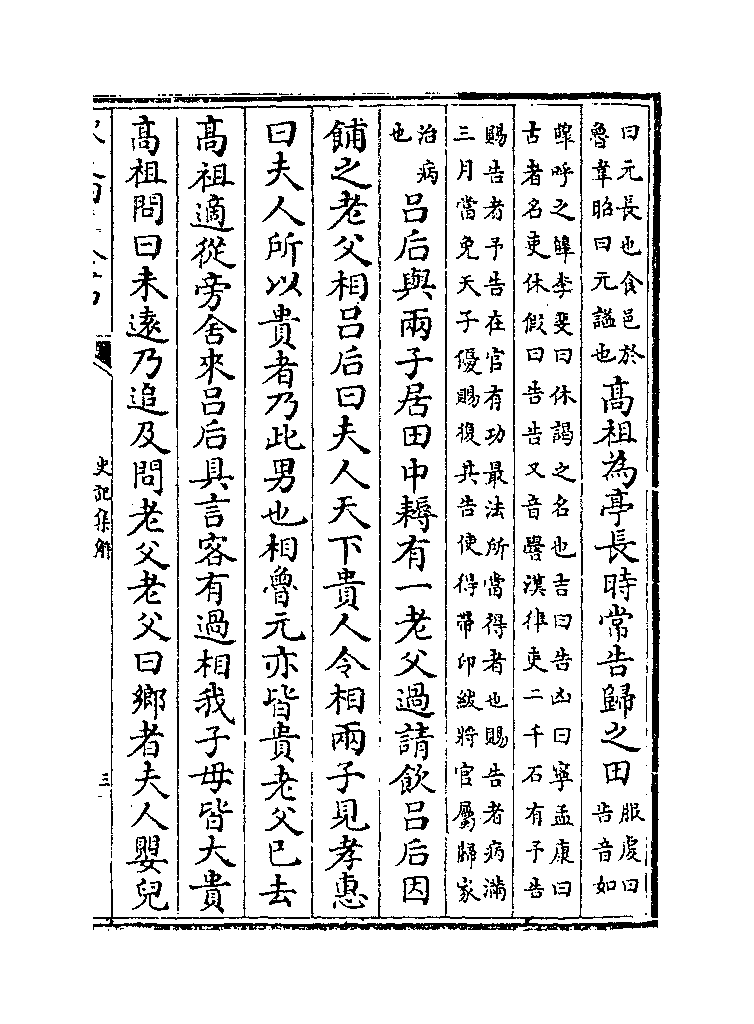 曰元長也食邑於
魯韋昭曰元諡也
高祖為亭長時常告歸之田
服虔曰
告音如
嘷呼之嘷李斐曰休謁之名也吉曰告凶曰寧孟康曰
古者名吏休假曰告告又音嚳漢律吏二千石有予告
賜告者予告在官有功最法所當得者也賜告者病滿
三月當免天子優賜復其告使得帶印紱將官屬歸家
治病
也
呂后與兩子居田中耨有一老父過請飲呂后因
餔之老父相呂后曰夫人天下貴人令相兩子見孝惠
曰夫人所以貴者乃此男也相魯元亦皆貴老父已去
高祖適從旁舍來呂后具言客有過相我子母皆大貴
高祖問曰未遠乃追及問老父老父曰鄉者夫人嬰兒
史記集解
三